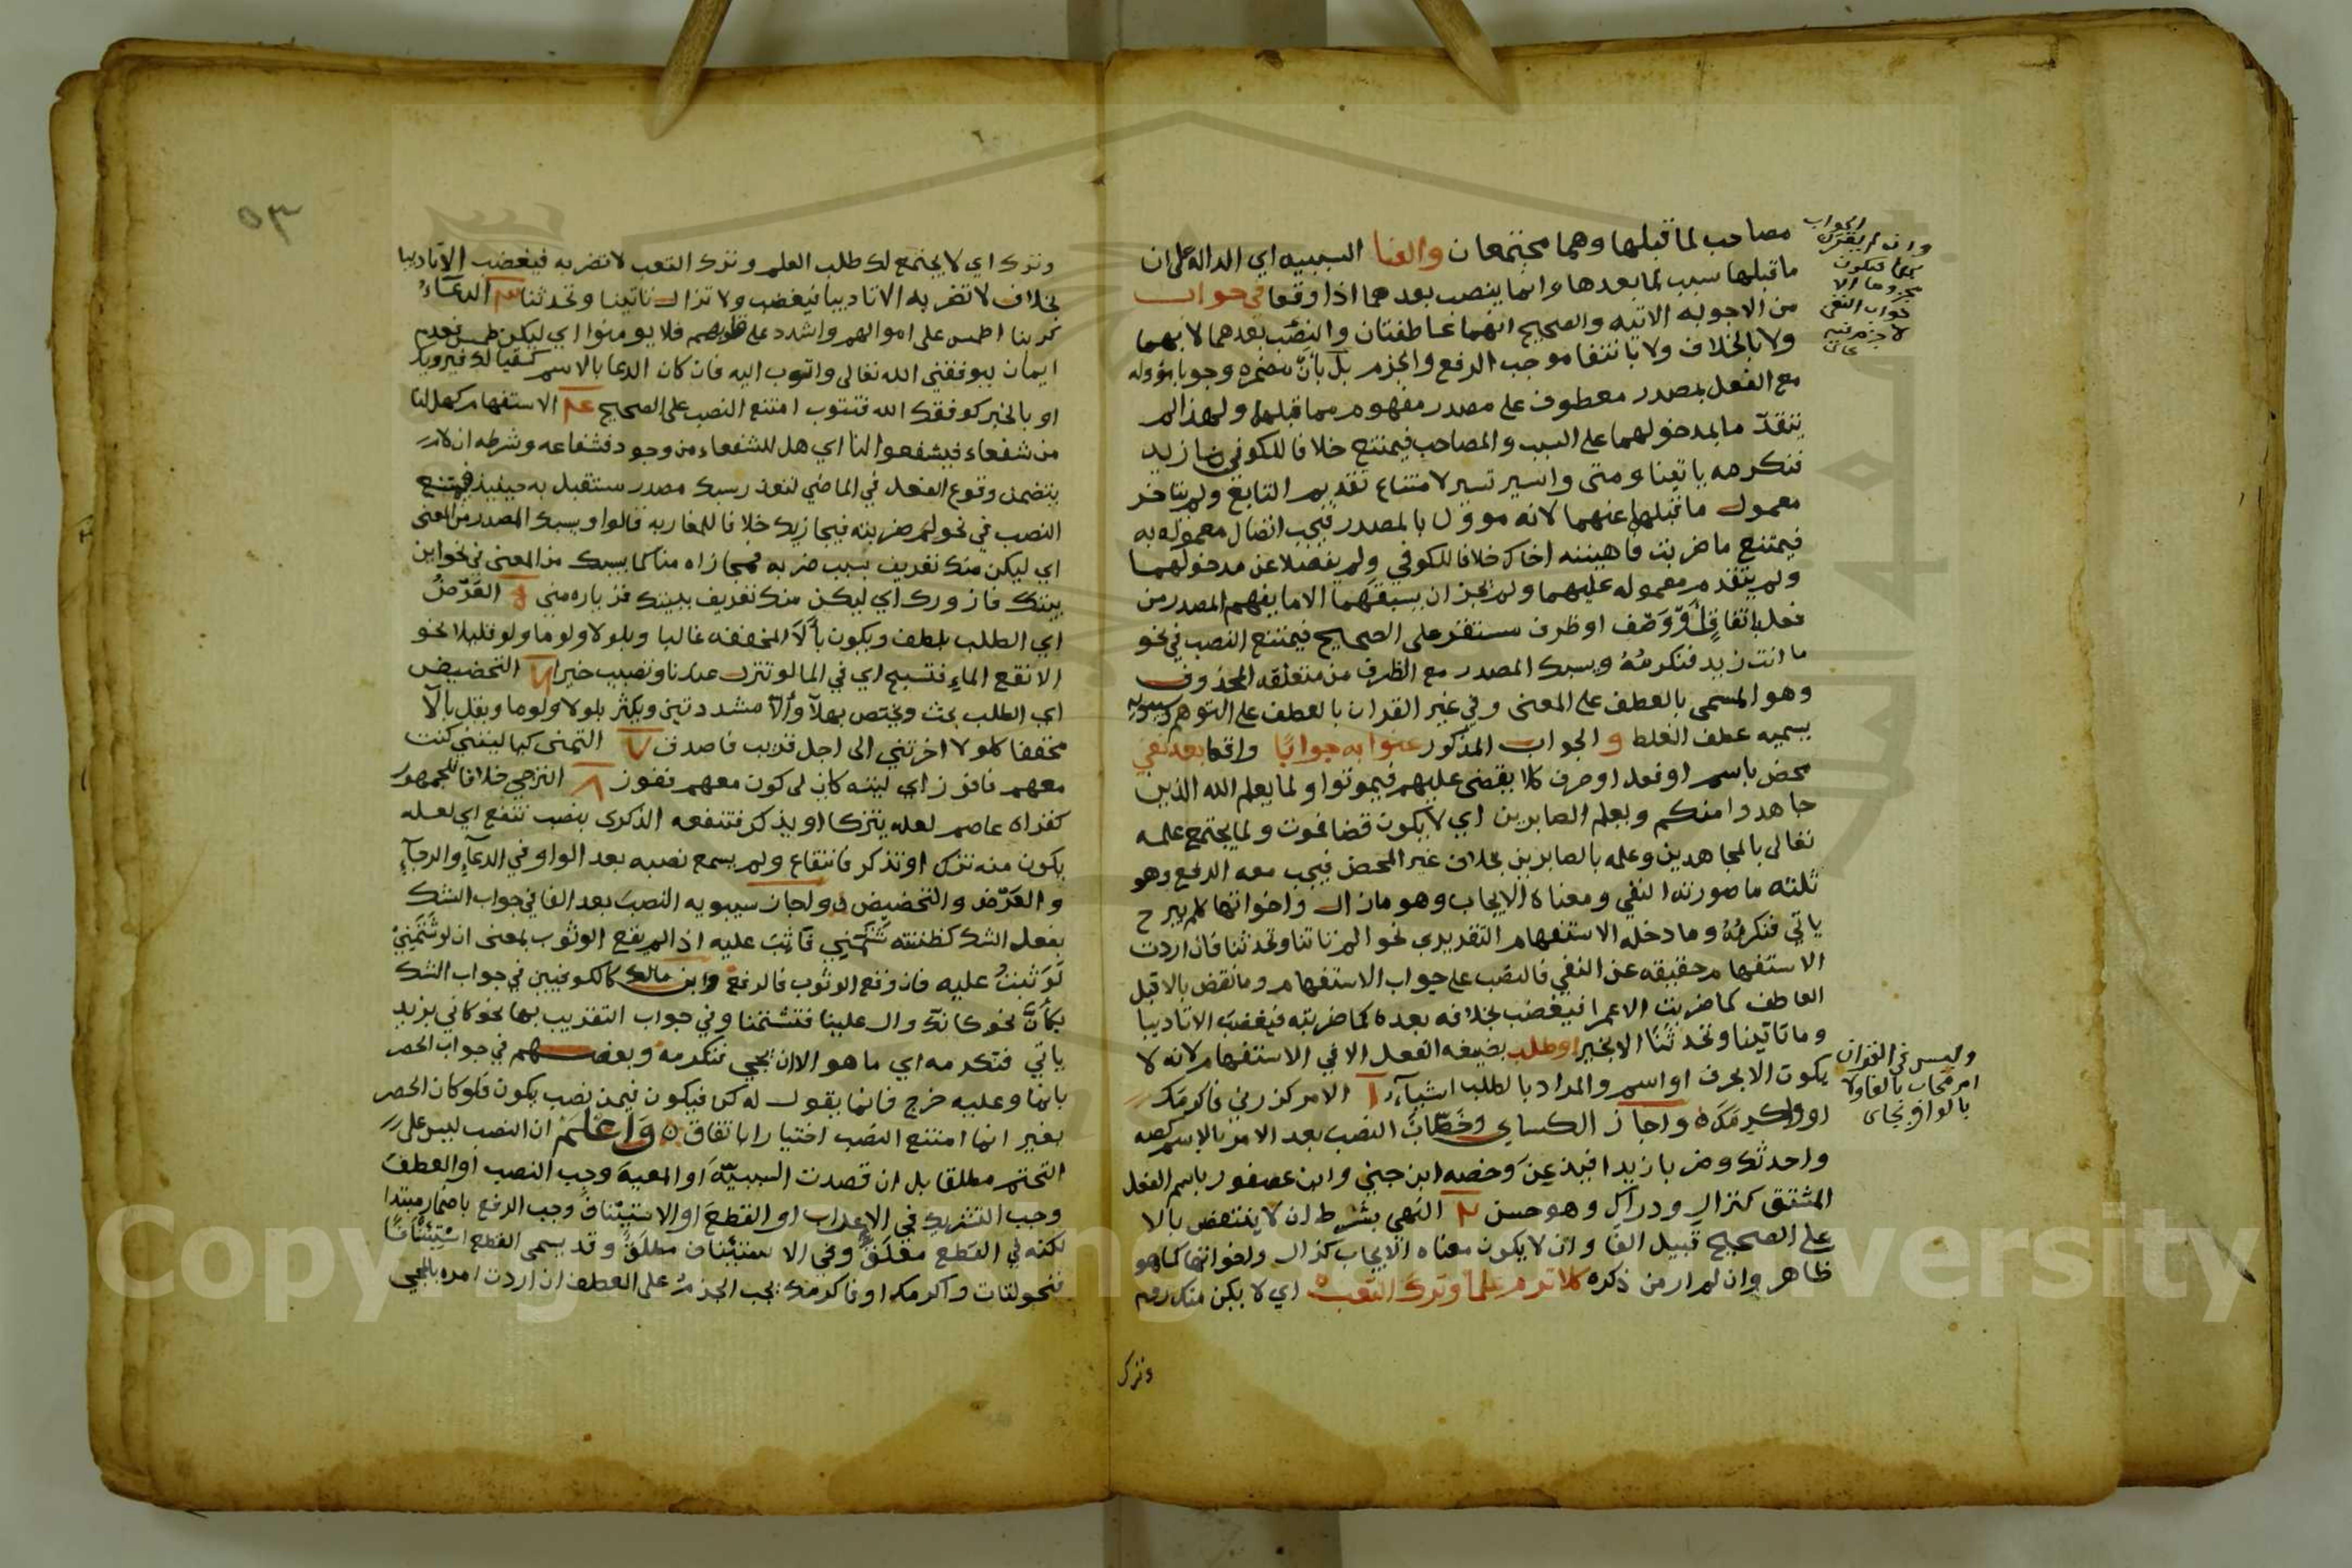 مصاحب لما قبلها وهما مجتمعان والفا السببيه اي الداله على ان
ما قبلها سبب لما بعدها وانما ينصب بعدهما اذا وقعا في جواب
من الاجوبه الاتيه والصحيح انهما عاطفتان والنصب بعدهما لا بهما
ولا بالخلاف ولا بانتفا موجب الرفع والجزم بل بأن مضمره وجوبا مؤوله
مع الفعل بمصدر معطوف على مصدر مفهوم مما قبلها ولهذا لم
يتقدّ ما بمدخولهما على السبب والمصاحب فيمتنع خلافا للكوفي ما زيد
فنكرمه ياتينا ومتى واسير تسير لامتناع تقديم التابع ولم يتاخر
معمول ما قبلها عنهما لانه مؤول بالمصدر فيجب اتصال معموله به
فيمتنع ما ضربت فاهينه اخاك خلافا للكوفي ولم يفصلا عن مدخولهما
ولم يتقدم معموله عليهما ولم يجز ان يسبقهما الا ما يفهم المصدر من
فعل باتفاق أو وصف او ظرف مستقر على الصحيح فيمتنع النصب في نحو
ما انت زيد فنكرمُهُ ويسبك المصدر مع الظرف من متعلقه المحذوف
وهو المسمى بالعطف على المعنى وفي غير القران بالعطف على التوهم وسيبويه
يسميه عطف الغلط و الجواب المذكور عنوا به جوابًا واقعا بعد نفي
محض باسم او فعل او حرف كلا يقضى عليهم فيموتوا ولما يعلم الله الذين
جاهدوا منكم ويعلم الصابرين اي لا يكون قضا فموت ولما يجتمع علمه
تعالى بالمجاهدين وعلمه بالصابرين بخلاف غير المحض فيجب معه الرفع وهو
ثلثه ما صورته النفي ومعناه الايجاب وهو مازال واخواتها كلم يبرح
ياتي فنكرمُهُ وما دخله الاستفهام التقريري نحو الم تاتنا وتحدثنا فان اردت
الاستفهام حقيقه عن النفي فالنصب على جواب الاستفهام وما نقض بالا قبل
العاطف كما ضربت الا عمرا فيغضب بخلافه بعده كما ضربته فيغضب الا تاديبا
وما تاتينا وتحدثنا الا بخير او طلب بصيغه الفعل الا في الاستفهام لانه لا
يكون الا بحرف او اسم والمراد بالطلب اشياء ١ الامر كزرني فاكرمك
او واكرمك واجاز الكساي وخصّاب النصب بعد الامر بالاسم كصه
واحدثك وضربا زيدا فيذعن وخصه ابن جني وابن عصفور باسم الفعل
المشتق كنزال ودراك وهو حسن ٢ النهي بشرط ان لا ينتقض بالا
على الصحيح قبيل الفا وان لا يكون معناه الايجاب كزال واخواتها كما هو
ظاهر وان لم ار من ذكره كلا ترم علما وترك التعب اي لا يكن منك روم
وترك
الجواب
وان لم يقترن
بهما فيكون
مجزوما الا
جواب النفي
لا جزم فيه
وليس في القران
امر مجاب بالفا ولا
بالواو
٥٣
وترك اي لا يجتمع لك طلب العلم وترك التعب لا تضربه فيغضب الا تاديبا
بخلاف لا تضربه الا تاديبا فيغضب ولا تزال تاتينا وتحدثنا ٣ الدعاء
كربنا اطمس على اموالهم واشدد على قلوبهم فلا يومنوا اي ليكن طمس فعدم
ايمان ليوفقني الله تعالى واتوب اليه فان كان الدعا بالاسم كسقيا لك فيرويك
او بالخبر كوفقك الله فتتوب امتنع النصب على الصحيح ٤ الاستفهام كهل لنا
من شفعاء فيشفعوا لنا اي هل للشفعاء من وجود فشفاعه وشرطه ان لا
يتضمن وقوع الفعل في الماضي لتعذر سبك مصدر مستقبل به حينيذ فيمتنع
النصب في نحو لم ضربته فيجازيك خلافا للمغاربه قالوا ويسبك المصدر من المعنى
اي ليكن منك تعريف بسبب ضربه فمجازاه منا كما يسبك من المعنى في نحو اين
بيتك فازورك اي ليكن منك تعريف ببيتك فزياره مني ٥ العَرْضُ
اي الطلب بلطف ويكون بألا المخففه غالبا وبلولا ولوما ولو قليلا نحو
الا تقع الماء فتسبح اي في الما لو تنزل عندنا وتصيب خيرا ٦ التحضيض
اي الطلب بحث ويختص بهلا وألا مشددتين ويكثر بلولا ولوما ويقل بألا
مخففا كلولا اخرتني الى اجل قريب فاصدق ٧ التمني كياليتني كنت
معهم فافوز اي ليته كان لي كون معهم نفوز ٨ الترجي خلافا للجمهور
كقراه عاصم لعله يتزكا او يذكر فتنفعه الذكرى بنصب تنفع اي لعله
يكون منه تزك او تذكر فانتفاع ولم يسمع نصبه بعد الواو في الدعاء والرجاء
والعَرْض والتحضيض واجاز سيبويه النصب بعد الفا في جواب الشك
بفعل الشك كظننته شتمني فأثبَ عليه اذا لم يقع الوثوب بمعنى ان لو شتمني
لوثبتُ عليه فان وقع الوثوب فالرفع وابن مالك كالكوفيين في جواب الشك
بكأنّ نحو كانك وال علينا فتشتمنا وفي جواب التقريب بها نحو كاني بزيد
ياتي فنكرمه اي ما هو الا ان يجي فنكرمه وبعضهم في جواب الحصر
بانما وعليه خرج فانما يقول له كن فيكون فيمن نصب يكون فلو كان الحصر
بغير انما امتنع النصب اختيارا باتفاق ٥ وَاعْلَمْ ان النصب ليس على
التحتم مطلقا بل ان قصدت السببيّه او المعيه وجب النصب او العطف
وجب التشريك في الاعراب او القطع او الاستئناف وجب الرفع باضمار مبتدا
لكنه في القطع مقلق وفي الاستئناف مطلق وقد يسمى القطع استئنافًا
فنحو لتات واكرمك او فاكرمك يجب الجزم على العطف ان اردت امره بالمجي
Copyright © King Saud University